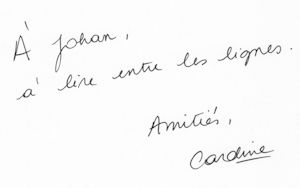 À Johan,
à lire entre les lignes.
Amitiés,
Cardine